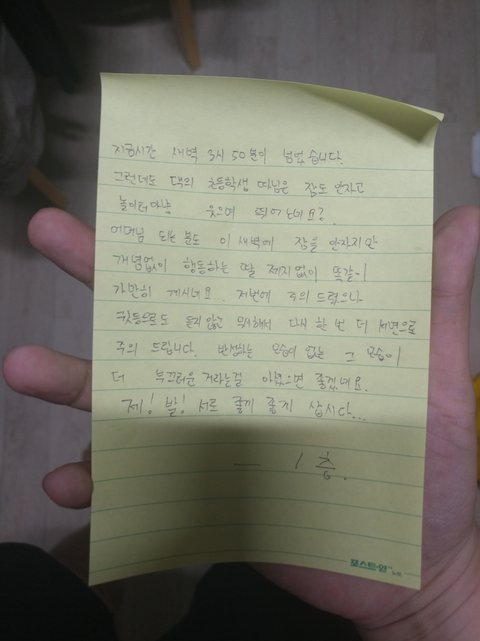 지금시간 새벽 3시 50분이 넘었습니다.
그런데도 댁의 초등학생 따님은 잠도 안자고
놀이터마냥 웃으며 뛰어노네요?
어머님 되는 분도 이 새벽에 잠을 안자지만
개념없이 행동하는 딸 제지없이 똑같이
가만히 계시네요. 저번에 주의 드렸으나
귓등으로도 듣지 않고 무시해서 다시 한 번 더 서면으로
주의 드립니다. 반성하는 모습이 없는 그 모습이
더 부끄러운 거라는걸 아셨으면 좋겠네요.
제! 발! 서로 좋게 좋게 삽시다...
— 1층.
포스트-잇 노트